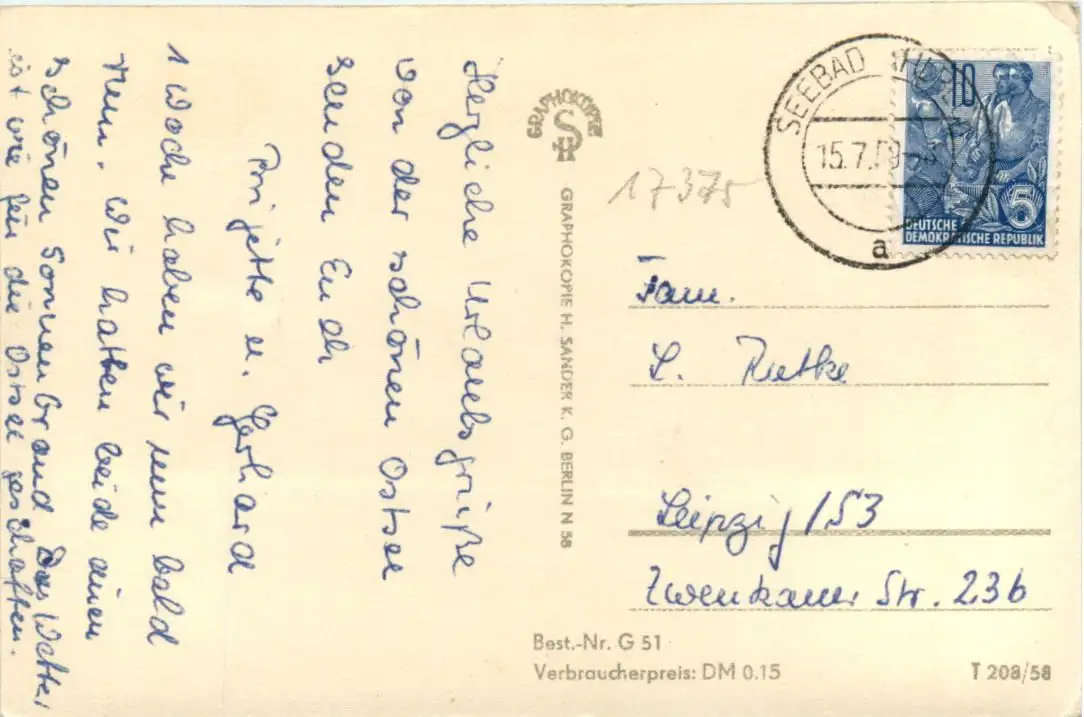 Herzliche Urlaubsgrüße
von der schönen Ostsee
senden Euch
Brigitte u. Gerhard
1 Woche haben wir nun bald
rum. Wir hatten beide einen
schönen Sonnenbrand Das Wetter
ist wie für die Ostsee geschaffen.
GRAPHOKOPIE
GRAPHOKOPIE H. SANDER K. G. BERLIN N 58
17375
SEEBAD
15.7.
a
10
5
DEUTSCHE
DEMOKRATISCHE REPUBLIK
Fam.
L. Rutke
Leipzig / 53
Zwenkauer Str. 23b
Best.-Nr. G 51
Verbraucherpreis: DM 0.15
T 208/58